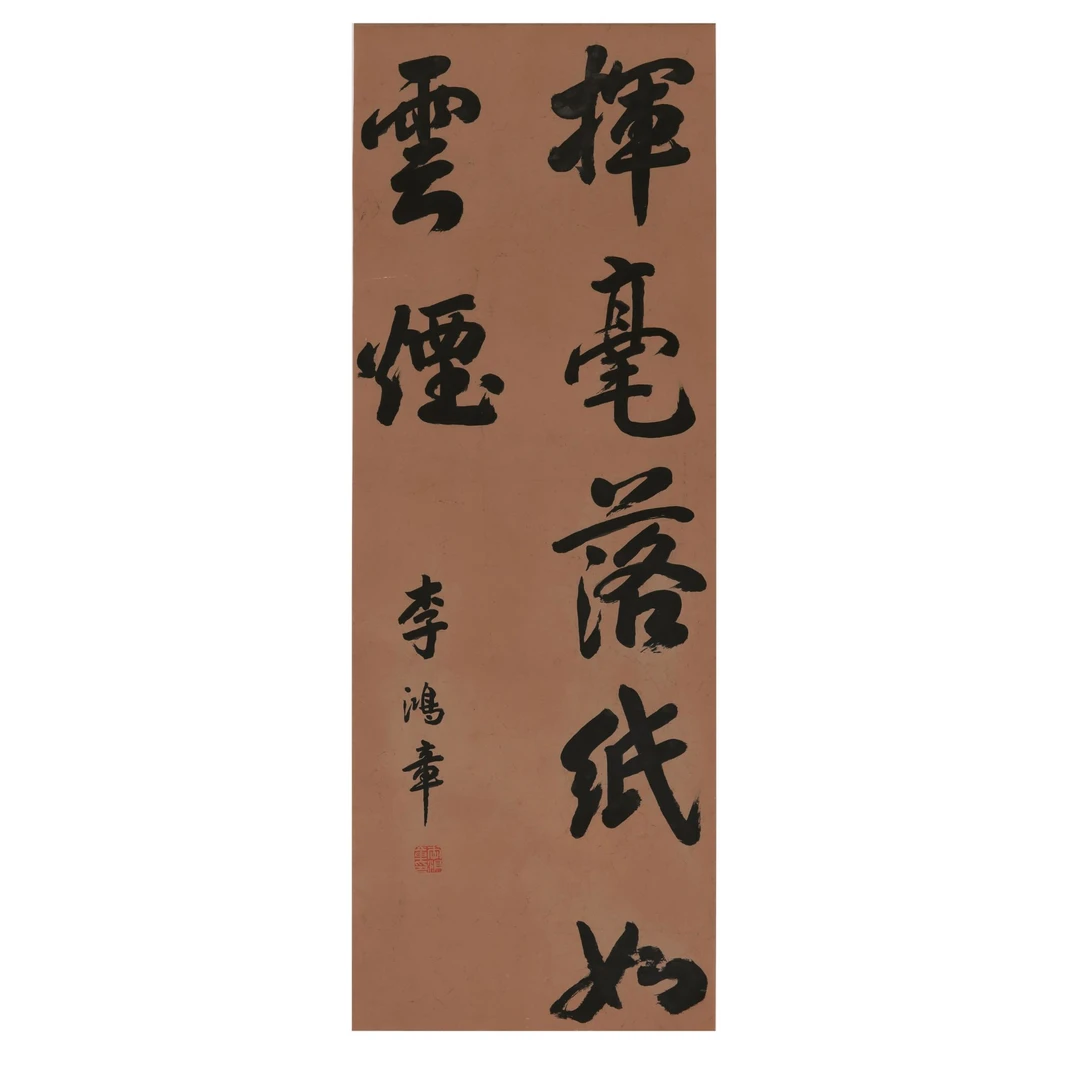 揮毫落紙如
雲煙
李鴻章